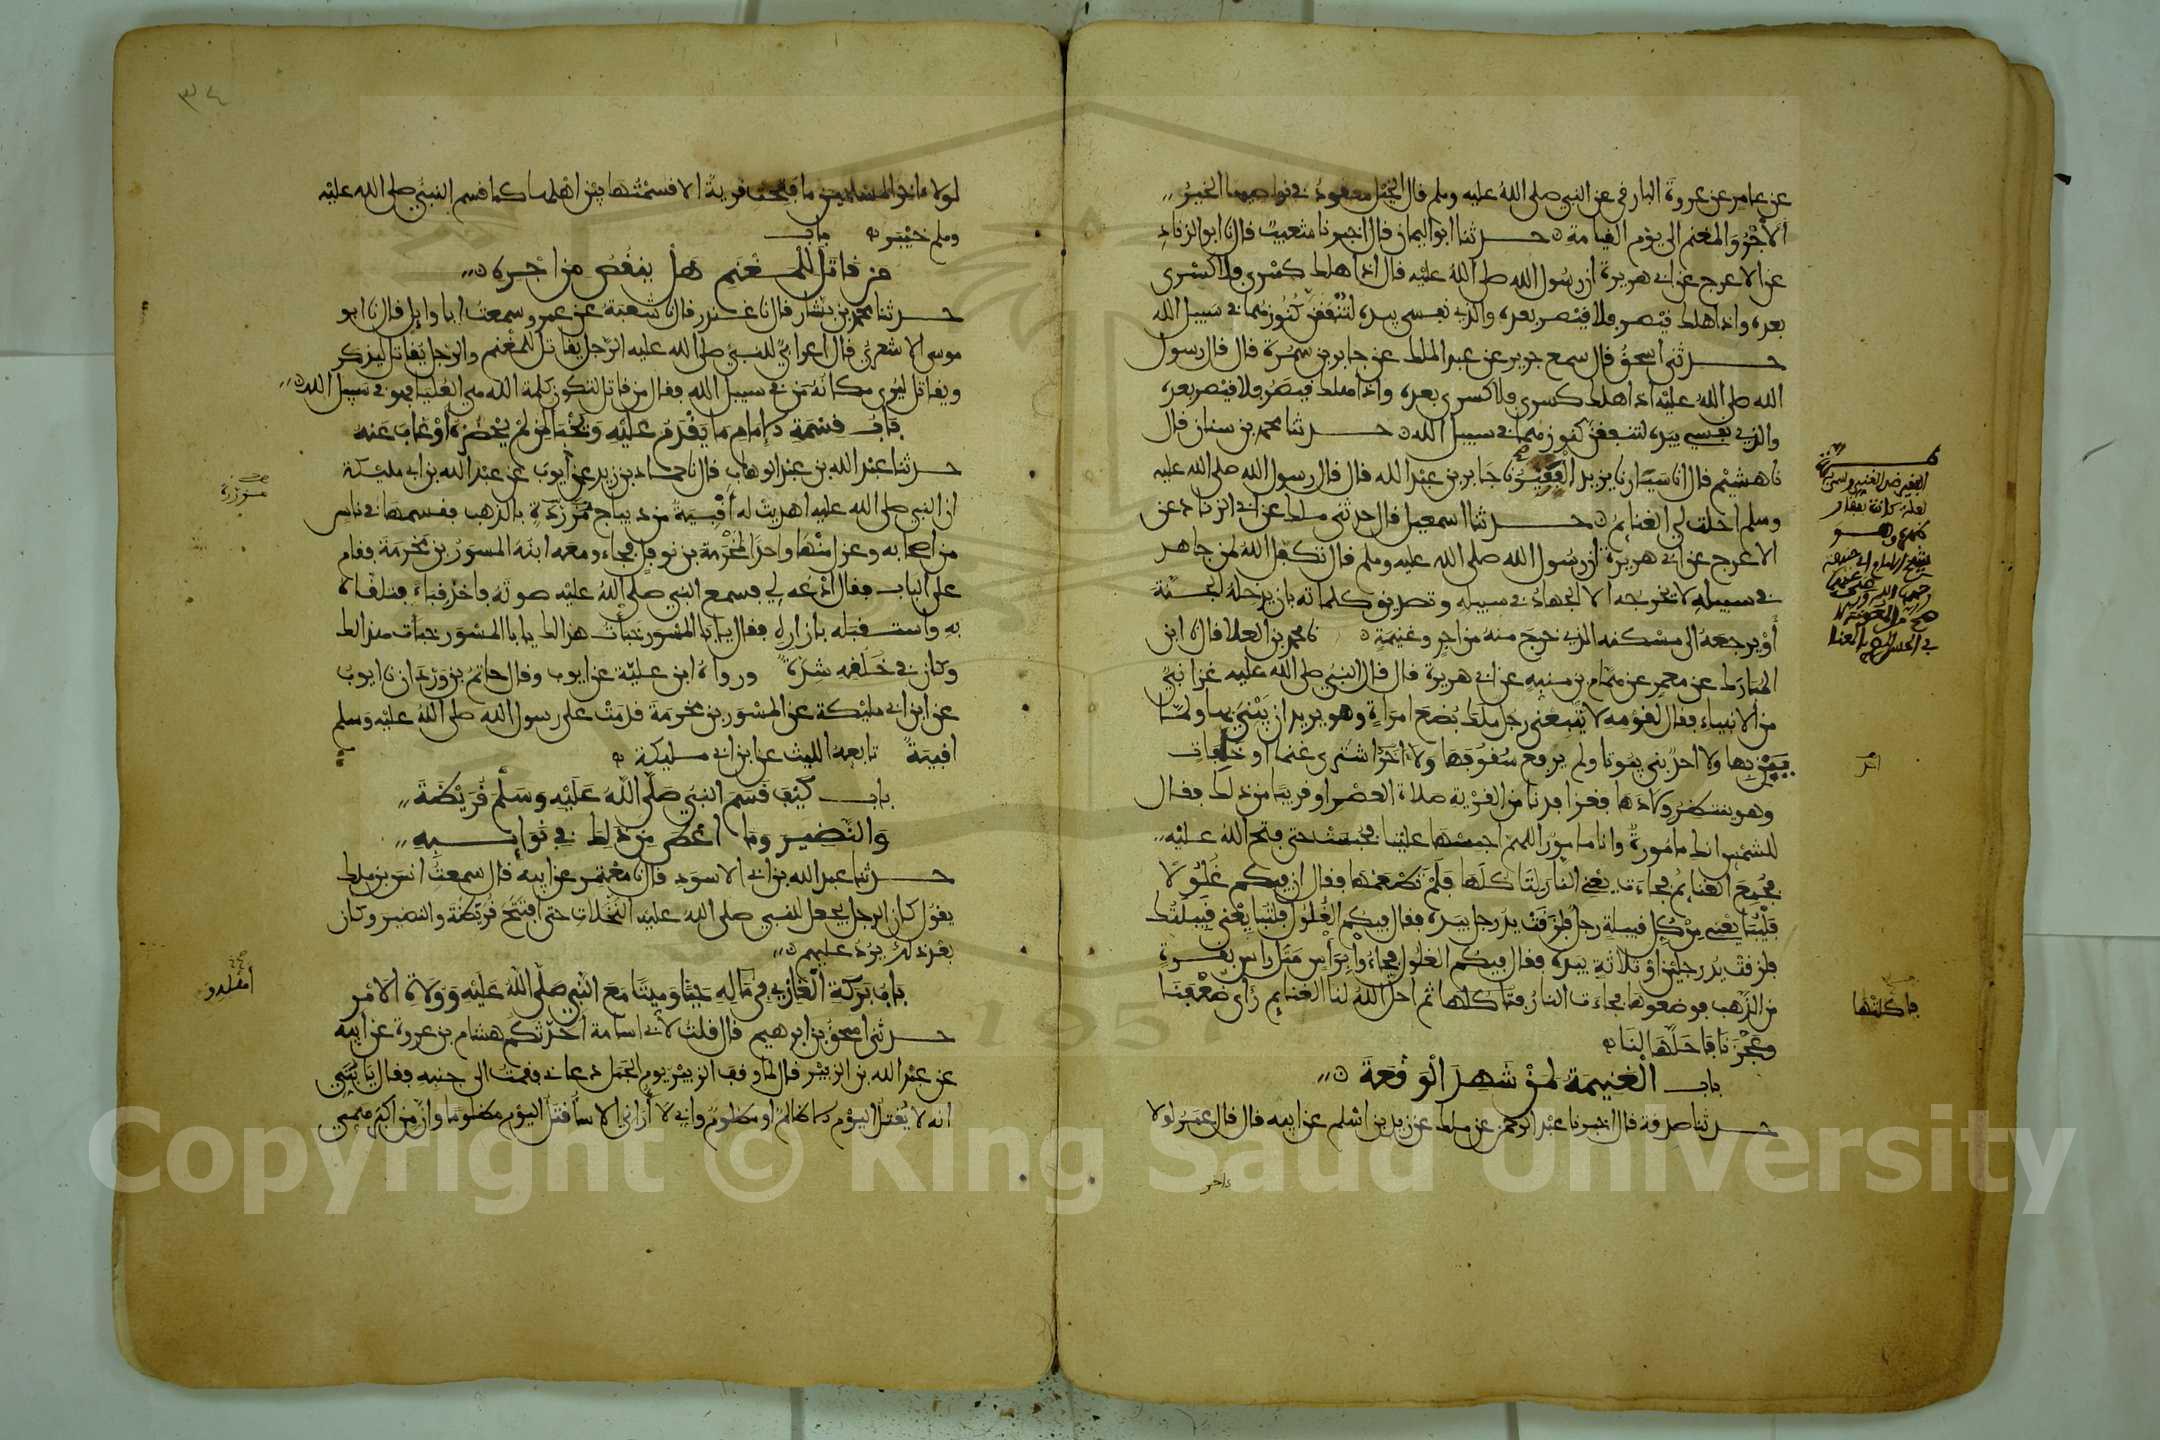 عن عامر عن عروة البارقي عن النبي صلى الله عليه وسلم قال الخيل معقود في نواصيها الخير
الاجر والمغنم الى يوم القيامة حدثنا ابو اليمان قال اخبرنا شعيب قال نا ابو الزناد
عن الاعرج عن ابي هريرة ان رسول الله صلى الله عليه قال اذا هلك كسرى فلا كسرى
بعده واذا هلك قيصر فلا قيصر بعده والذي نفسي بيده لتنفقن كنوزهما في سبيل الله
حدثني اسحق قال سمع جرير عن عبد الملك عن جابر بن سمرة قال قال رسول
الله صلى الله عليه اذا هلك كسرى فلا كسرى بعده واذا هلك قيصر فلا قيصر بعده
والذي نفسي بيده لتنفقن كنوزهما في سبيل الله حدثنا محمد بن سنان قال
نا هشيم قال انا سيار نا يزيد الفقير نا جابر بن عبد الله قال قال رسول الله صلى الله عليه
وسلم احلت لي الغنائم حدثنا اسمعيل قال حدثني ملك عن ابي الزناد عن
الاعرج عن ابي هريرة ان رسول الله صلى الله عليه وسلم قال تكفل الله لمن جاهد
في سبيله لا يخرجه الا الجهاد في سبيله وتصديق كلماته بان يدخله الجنة
أو يرجعه الى مسكنه الذي خرج منه من اجر وغنيمة نا محمد بن العلا قال نا ابن
المبارك عن معمر عن همام بن منبه عن ابي هريرة قال قال النبي صلى الله عليه غزا نبي
من الانبياء فقال لقومه لا يتبعني رجل ملك بضع امراة وهو يريد ان يبني بها ولما
يبن بها ولا احد بنى بيوتا ولم يرفع سقوفها ولا اخر اشترى غنما او خلفات
وهو ينتظر ولادها فغزا فدنا من القرية صلاة العصر او قريبا من ذلك فقال
للشمس انك مامورة وانا مامور اللهم احبسها علينا فحبست حتى فتح الله عليه
فجمع الغنائم فجاءت يعني النار لتاكلها فلم تطعمها فقال ان فيكم غلولا
فليبايعني من كل قبيلة رجل فلزقت يد رجل بيده فقال فيكم الغلول فلتبايعني قبيلتك
فلزقت يد رجلين او ثلاثة بيده فقال فيكم الغلول فجاءوا براس مثل راس بقرة
من الذهب فوضعوها فجاءت النار فتاكلها ثم احل الله لنا الغنايم رأى ضعفنا
وعجزنا فاحلها لنا
باب الغنيمة لمن شهد الوقعة
حدثنا صدقة قال اخبرنا عبد الرحمن عن ملك عن زيد بن اسلم عن ابيه قال قال عمر لولا
اخر
فاكلتها
٣٤
لولا اخر المسلمين ما فتحت قرية الا قسمتها بين اهلها كما قسم النبي صلى الله عليه
وسلم خيبر باب
من قاتل للمغنم هل ينقص من اجره
حدثنا محمد بن بشار قال نا غندر قال نا شعبة عن عمرو سمعت ابا وايل قال نا ابو
موسى الاشعري قال اعرابي للنبي صلى الله عليه الرجل يقاتل للمغنم والرجل يقاتل ليذكر
ويقاتل ليرى مكانه من في سبيل الله فقال من قاتل لتكون كلمة الله هي العليا فهو في سبيل الله
باب قسمة الامام ما يقدم عليه ويخبأ لمن لم يحضره أو غاب عنه
حدثنا عبد الله بن عبد الوهاب قال نا حماد بن زيد عن أيوب عن عبد الله بن ابي مليكة
ان النبي صلى الله عليه اهديت له أقبية من ديباج مزردة بالذهب فقسمها في ناس
من اصحابه وعزل منها واحدا لمخرمة بن نوفل فجاء ومعه ابنه المسور بن مخرمة فقام
على الباب فقال ادعه لي فسمع النبي صلى الله عليه صوته فاخذ قباء فتلقاه
به واستقبله بازراره فقال يابا المسور خبأت هذا لك يابا المسور خبأت هذا لك
وكان في خلقه شدة ورواه ابن علية عن ايوب وقال حاتم بن وردان نا ايوب
عن ابن ابي مليكة عن المسور بن مخرمة قدمت على رسول الله صلى الله عليه وسلم
اقبية تابعه الليث عن ابن ابي مليكة
باب كيف قسم النبي صلى الله عليه وسلم قريظة
والنضير وما اعطى من ذلك في نوائبه
حدثنا عبد الله بن ابي الاسود قال نا معتمر عن ابيه قال سمعت انس بن ملك
يقول كان الرجل يجعل للنبي صلى الله عليه النخلات حتى افتتح قريظة والنضير وكان
بعد ذلك يرد عليهم
باب بركة الغازي في ماله حيا وميتا مع النبي صلى الله عليه وولاة الامر
حدثني اسحق بن ابرهيم قال قلت لابي اسامة أحدثكم هشام بن عروة عن ابيه
عن عبد الله بن الزبير قال لما وقف الزبير يوم الجمل دعاني فقمت الى جنبه فقال يا بني
انه لا يقتل اليوم الا ظالم او مظلوم واني لا أراني الا سأقتل اليوم مظلوما وان من اكبر همي
مزررة